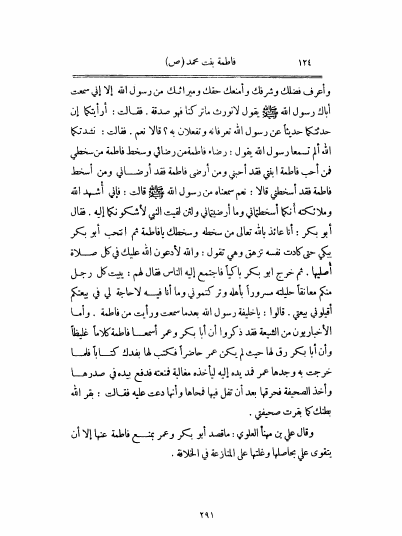 ١٢٤ فاطمة بنت محمد (ص)
وأعرف فضلك وشرفك وأمنعك حقك وميراثك من رسول الله إلا إني سمعت
أباك رسول الله ﷺ يقول لانورث ماتركنا فهو صدقة . فقالت : أرأيتكما إن
حدثتكما حديثاً عن رسول الله تعرفانه وتفعلان به ؟ قالا نعم . فقالت : نشدتكما
الله ألم تسمعا رسول الله يقول : رضاء فاطمة من رضائي وسخط فاطمة من سخطي
فمن أحب فاطمة ابنتي فقد أحبني ومن أرضى فاطمة فقد أرضاني ومن أسخط
فاطمة فقد أسخطني قالا : نعم سمعناه من رسول الله ﷺ قالت : فإني أُشهد الله
وملائكته أنكما أسخطتماني وما أرضيتماني ولئن لقيت النبي لأشكونكما إليه . فقال
أبو بكر : أنا عائذ بالله تعالى من سخطه وسخطك يافاطمة ثم انتحب أبو بكر
يبكي حتى كادت نفسه تزهق وهي تقول : والله لأدعون الله عليك في كل صلاة
أصليها . ثم خرج ابو بكر باكياً فاجتمع إليه الناس فقال لهم : يبيت كل رجل
منكم معانقاً حليلته مسروراً بأهله وتركتموني وما أنا فيه لاحاجة لي في بيعتكم
أقيلوني بيعتي . قالوا : ياخليفة رسول الله بعدما سمعت ورأيت من فاطمة . وأما
الأخباريون من الشيعة فقد ذكروا أن أبا بكر وعمر أسمعا فاطمة كلاماً غليظاً
وأن أبا بكر رق لها حيث لم يكن عمر حاضراً فكتب لها بفدك كتاباً فلما
خرجت به وجدها عمر فمد يده إليه ليأخذه مغالبة فمنعته فدفع بيده في صدرها
وأخذ الصحيفة فحرقها بعد أن تفل فيها فمحاها وأنها دعت عليه فقالت : بقر الله
بطنك كما بقرت صحيفتي .
وقال علي بن مهنأ العلوي : ماقصد أبو بكر وعمر بمنع فاطمة عنها إلا أن
يتقوى علي بحاصلها وغلتها على المنازعة في الخلافة .
٢٩١